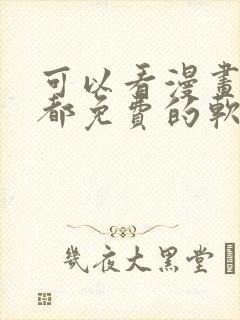 可以看漫畫
都免費的軟
幾夜大黑堂